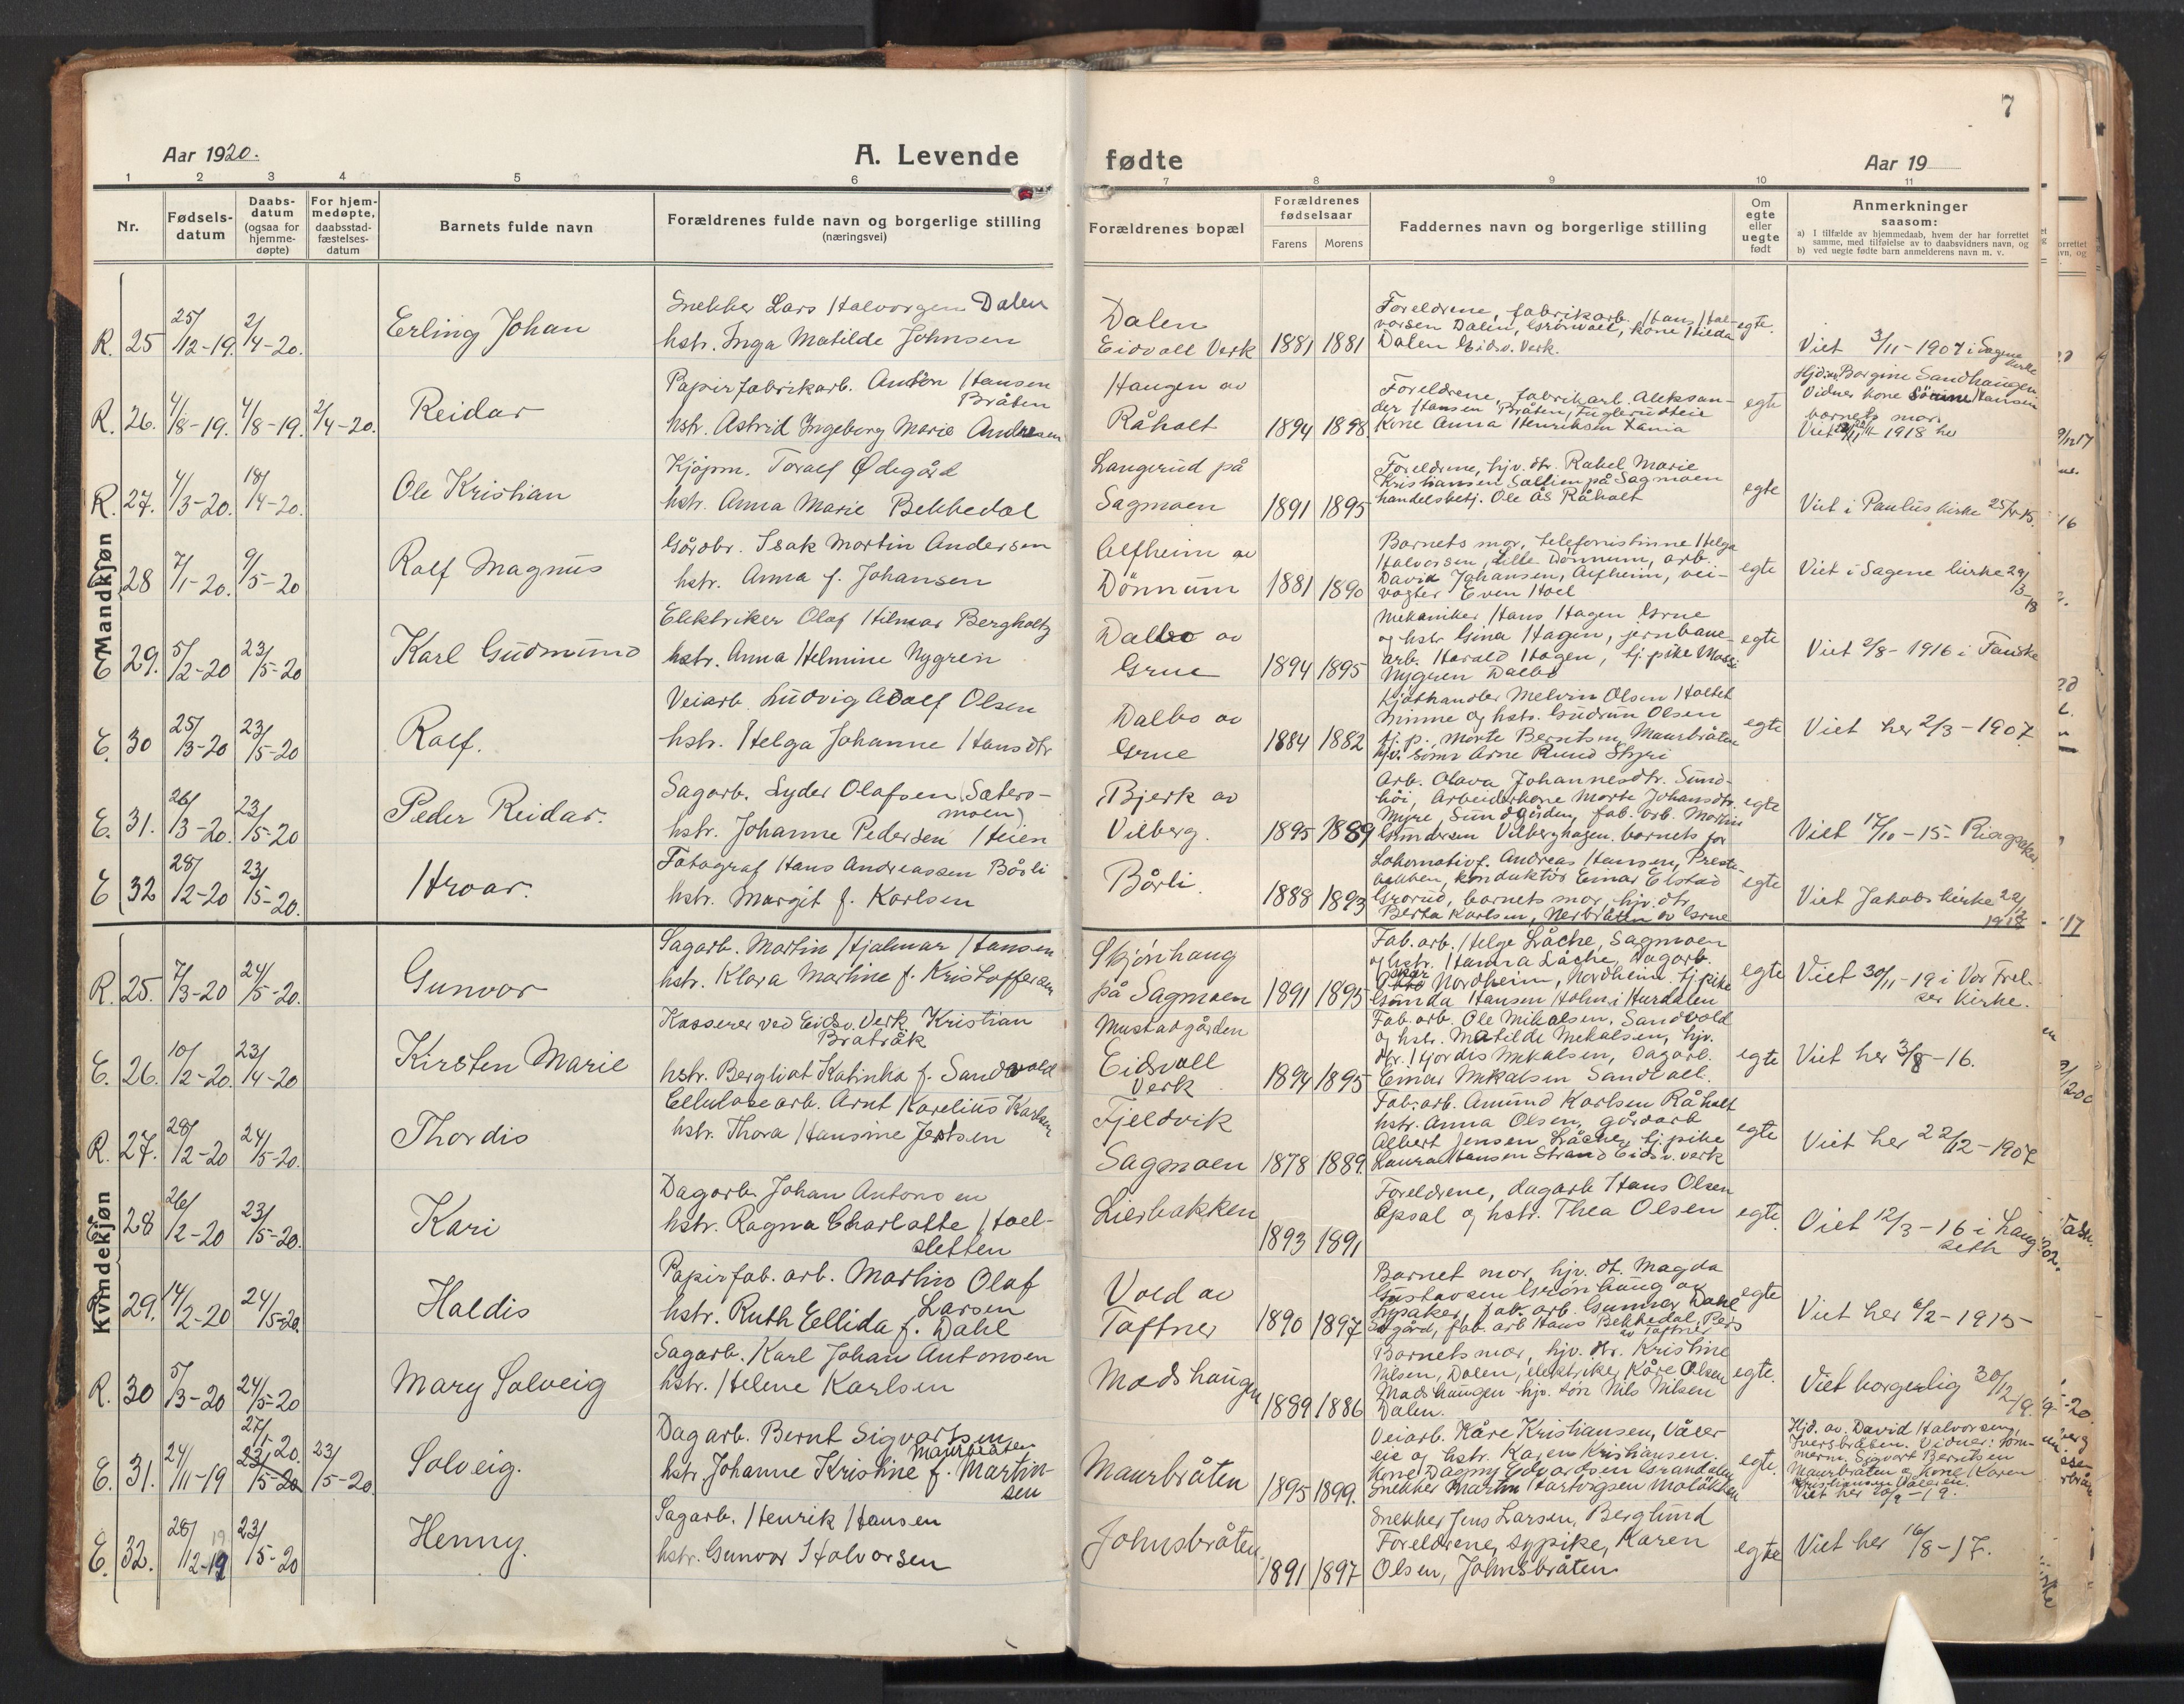 7
Aar 1920.
A. Levende
fødte
Aar 19
1 2 3 4 5 6 7 8 9 10 11
Nr.
Fødsels-
datum
Daabs-
datum
(ogsaa for
hjemme-
døpte)
For hjem-
medøpte,
daabsstad-
fæstelses-
datum
Barnets fulde navn
Forældrenes fulde navn og borgerlige stilling
(næringsvei)
Forældrenes bopæl
Forældrenes
fødselsaar
Farens Morens
Faddernes navn og borgerlige stilling
Om
egte
eller
uegte
født
Anmerkninger
saasom:
a) I tilfælde av hjemmedaab, hvem der har forrettet
samme, med tilføielse av to daabsvidners navn, og
b) ved uegte fødte barn anmelderens navn m. v.
Mandkjøn
R. 25 25/12-19. 2/4-20.
Erling Johan
Snekker Lars Halvorsen Dalen
hstr. Inga Matilde Johnsen
Dalen
Eidsvoll Verk
1881 1881
Foreldrene, fabrikarb. Hans Hal-
vorsen Dalen, Grönvoll, kone Hilda
Dalen Eidsv. Verk.
egte.
Viet 3/11-1907 i Sagene
kirke
R. 26. 4/8-19. 4/8-19. 2/4-20.
Reidar
Papirfabrikarb. Anton Hansen
Bråten
hstr. Astrid Ingeborg Marie Andresen
Haugen av
Råholt
1894 1898
Foreldrene, fabrikarb. Aleksan-
der Hansen Bråten, Fuglerudteie
Kone Anna Henriksen
egte
Hjd. av Borgine Sandhaugen
Vidner kone Hansen
barnets mor.
1918 her
R. 27. 4/3-20. 18/4-20.
Ole Kristian
Kjöpm. Toralf Ødegård
hstr. Anna Marie Bekkedal
Langerud på
Sagmoen
1891 1895
Foreldrene, hjv. dtr. Rakel Marie
Kristiansen på Sagmoen
handelsbetj. Ole Ås Råholt
egte
Viet i Paulus kirke
28 7/1-20. 9/5-20
Rolf Magnus
Gårdbr. Isak Martin Andersen
hstr. Anna f. Johansen
Alfheim av
Dönnum
1881 1890
Barnets mor, telefonistinne Helga
Halvorsen, Lille Dönnum, arb.
David Johansen, Alfheim, vei-
vogter Even Hoel
egte
Viet i Sagene kirke 29/3-18
E 29. 5/2-20 23/5-20
Karl Gudmund
Elektriker Olaf Hilmar Bergholtz
hstr. Anna Helmine Nygren
Dalbo av
Grue
1894 1895
Mekaniker Hans Hagen Grue
og hstr Gina Hagen, jernbane-
arb. Harald Hagen, tj. pike
Nygren Dalbo
egte
Viet 2/8-1916 i Fauske
E. 30 25/3-20 23/5-20
Rolf.
Veiarb. Ludvig Adolf Olsen
hstr. Helga Johanne Hansdtr
Dalbo av
Grue
1884 1882
Kjöthandler Melvin Olsen Holtet
Minne og hstr. Gudrun Olsen
tj. p. Marte Berntsen Maurbråten
Arne Ruud Styri
egte
Viet her 2/3-1907.
E. 31. 26/3-20. 23/5-20
Peder Reidar.
Sagarb. Lyder Olafsen (Sæters-
moen)
hstr. Johanne Pedersen Heien
Bjerk av
Vilberg.
1895 1889
Arb. Olava Johannesdtr. Sund-
höi, Arbeiderkone Marte Johansdtr.
Myre, Sundgården, fab. arb. Martin
Gundersen Vilberghagen. barnets far
egte
Viet 17/10-15-
E 32 28/2-20 23/5-20.
Hroar.
Fotograf Hans Andreassen Börli
hstr. Margit f. Karlsen
Börli.
1888 1893
Lokomotivf. Andreas Hansen, Preste-
bakken, konduktör Einar Elstad
Grorud, barnets mor, hjv. dtr.
Berta Karlsen, Nerbråten av Grue
egte
Viet Jakobs kirke 22/12
1918
Kvindekjøn
R. 25. 7/3-20 24/5-20.
Gunvor
Sagarb. Martin Hjalmar Hansen
hstr. Klara Martine f. Kristoffersen
Skjönhaug
på Sagmoen
1891 1895
Fab. arb. Helge Låche, Sagmoen
og hstr. Hanna Låche, dagarb.
Nordheim, Nordheim, tj. pike
Gunda Hansen Holm i Hurdalen
egte
Viet 30/11-19 i Vor Frel-
ser kirke.
E. 26. 10/2-20. 23/4-20
Kirsten Marie
Kasserer ved Eidsv. Verk. Kristian
Bratråk
hstr. Bergliot Katinka f. Sandvold
Mustadgården
Eidsvoll
Verk.
1894 1895
Fab. arb. Ole Mikalsen, Sandvold
og hstr. Matilde Mikalsen, hjv.
dtr. Hjördis Mikalsen, dagarb.
Einar Mikalsen Sandvoll.
egte
Viet her 3/8-16.
R. 27. 28/2-20 24/5-20.
Thordis
Cellulosearb. Arnt Karelius Karlsen
hstr. Thora Hansine Jertsen
Fjeldvik
Sagmoen
1878 1889.
Fab. arb. Amund Karlsen Råholt
hstr. Anna Olsen, gårdarb
Albert Jensen Låche, tj. pike
Laura Hansen Strand Eidsv. verk
egte
Viet her 22/12-1907
28 26/2-20 23/5-20.
Kari
Dagarb. Johan Antonsen
hstr. Ragna Charlotte Hoel-
sletten
Lierbakken
1893 1891
Foreldrene, dagarb Hans Olsen
Opsal og hstr. Thea Olsen
egte.
Viet 12/3-16 i Lang-
seth
29. 14/2-20 24/5-20.
Haldis
Papirfab. arb. Martin Olaf
Larsen
hstr. Ruth Ellida f. Dahl
Vold av
Töftner
1890 1897
Barnet mor, hjv. dt. Magda
Gustavsen Grönhaug av
Lysaker, fab. arb. Gunnar Dahl
fab. arb Hans Bekkedal,
av Töftner
egte
Viet her 6/2-1915-
R. 30 5/3-20 24/5-20
Mary Solveig
Sagarb. Karl Johan Antonsen
hstr. Helene Karlsen
Madshaugen
1889 1886
Barnets mor, hjv. dtr. Kristine
Nilsen, Dalen, elektriker Kåre Olsen
Madshaugen hjv. sön Nils Nilsen
Dalen.
egte.
Viet borgerlig 30/12-19.
E. 31. 24/11-19 27/1-20. 23/5-20 23/5-20.
Solveig.
Dagarb. Bernt Sigvartsen
Maurbråten
hstr. Johanne Kristine f. Martin-
sen
Maurbråten
1895 1899.
Veiarb. Kåre Kristiansen, Våler-
eie og hstr. Karen Kristiansen.
kone Dagny Edvardsen Grandalen
Snekker Martin Hartvigsen
egte.
Hjd. av. David Halvorsen,
Iversbråten. Vidner: töm-
merm. Sigvart Berntsen
Maurbråten og kone Karen
Kristiansen Vålereie.
Viet her
E. 32. 28/12-19 23/5-20
Henny.
Sagarb. Henrik Hansen
hstr. Gunvor Halvorsen
Johnsbråten
1891 1897
Snekker Jens Larsen, Berglund
Foreldrene, sypike, Karen
Olsen, Johnsbråten
egte
Viet her 16/8-17.